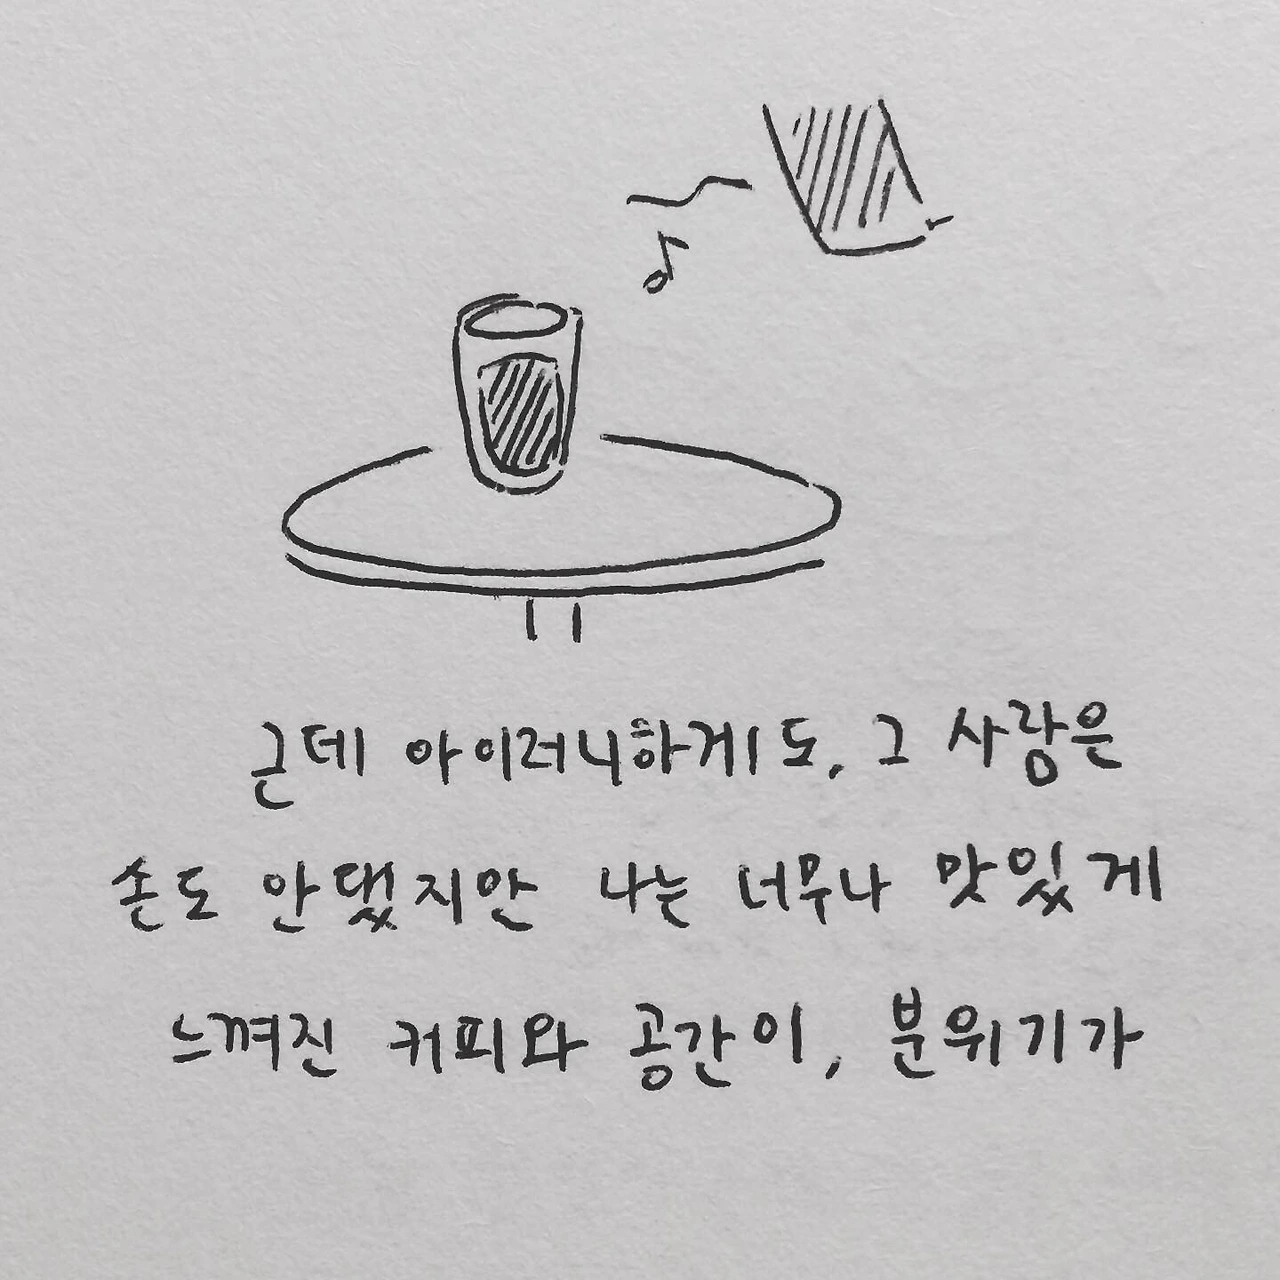 근데 아이러니하게도, 그 사람은
손도 안댔지만 나는 너무나 맛있게
느껴진 커피와 공간이, 분위기가